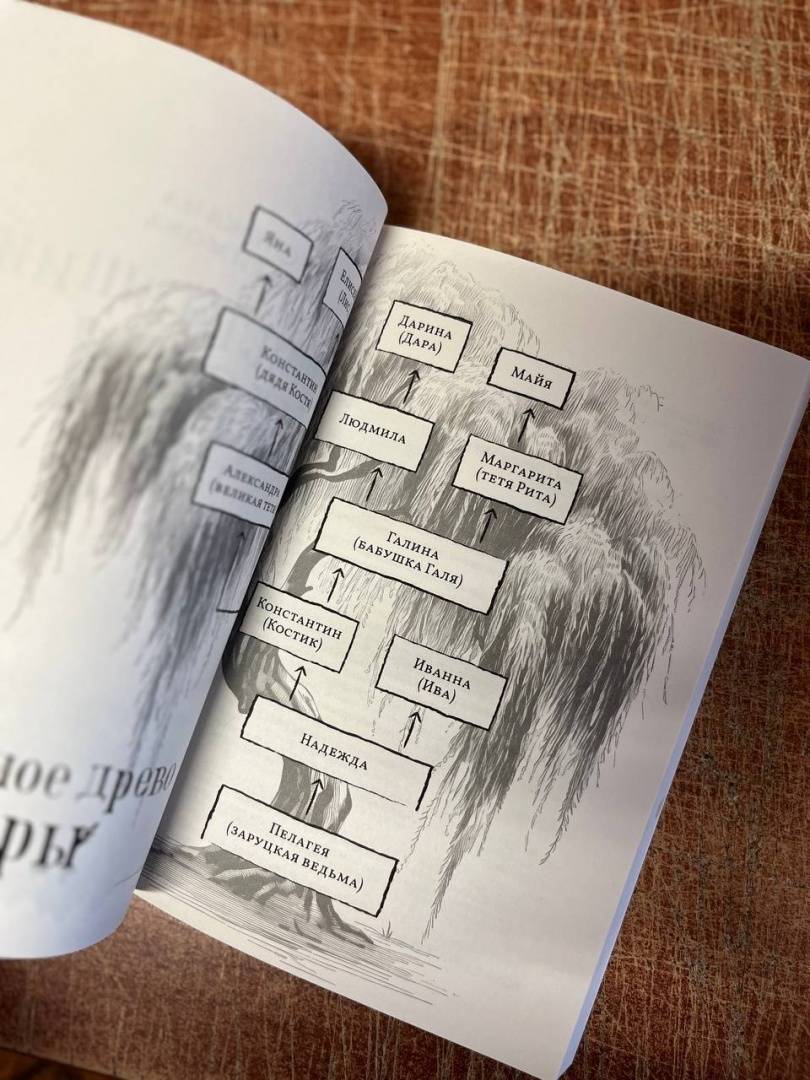 Яна
Константин
(дядя Костя)
Александра
(великая тётя
ное древо
ры
Дарина
(Дара)
Майя
Людмила
Маргарита
(тетя Рита)
Галина
(бабушка Галя)
Константин
(Костик)
Иванна
(Ива)
Надежда
Пелагея
(заруцкая ведьма)